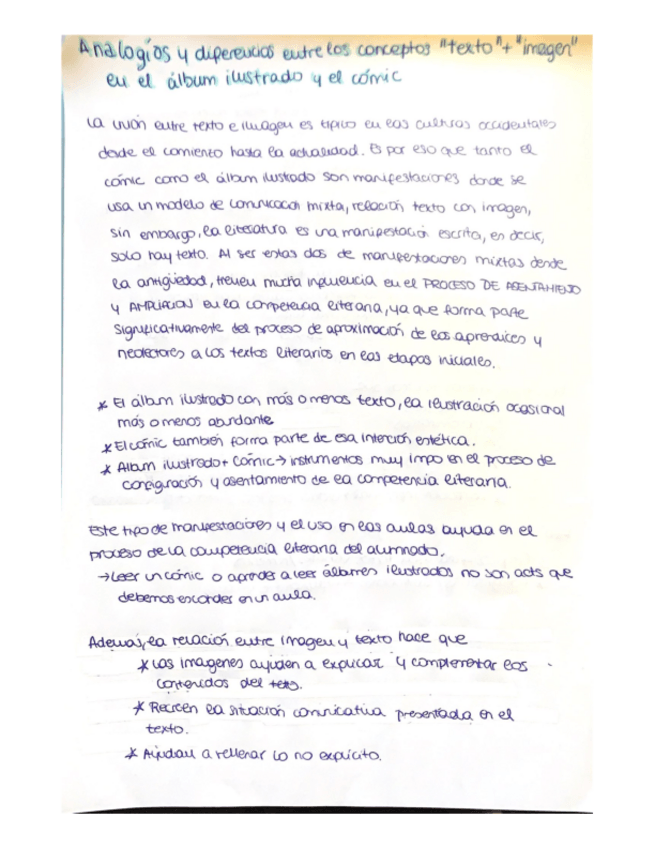 Analogías y diferencias entre los conceptos "texto" + "imagen"
en el álbum ilustrado y el cómic
La unión entre texto e imagen es típico en las culturas occidentales
desde el comiento hasta la actualidad. Es por eso que tanto el
cómic como el álbum ilustrado son manifestaciones donde se
usa un modelo de comunicación mixta, relación texto con imagen,
sin embargo, la literatura es una manifestación escrita, es decir,
solo hay texto. Al ser estas dos de manifestaciones mixtas desde
la antigüedad, tienen mucha influencia en el PROCESO DE ASENTAMIENTO
y AMPLIACIÓN en la competencia literaria, ya que forma parte
significativamente del proceso de aproximación de los aprendices y
neolectores a los textos literarios en las etapas iniciales.
* El álbum ilustrado con más o menos texto, la ilustración ocasional
más o menos abundante
* El cómic también forma parte de esa intención estética.
* Álbum ilustrado + cómic → instrumentos muy impo en el proceso de
configuración y asentamiento de la competencia literaria.
Este tipo de manifestaciones y el uso en las aulas ayuda en el
proceso de la competencia literaria del alumnado.
→ Leer un cómic o aprender a leer álbumes ilustrados no son acts que
debemos esconder en un aula.
Además, la relación entre imagen y texto hace que
* Las imagenes ayuden a explicar y complementar los
contenidos del texto.
* Recreen la situación comunicativa presentada en el
texto.
* Ayudan a rellenar lo no explícito.